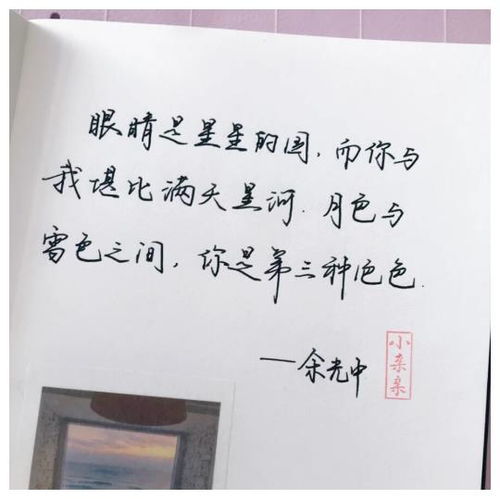 眼睛是星星的国，而你与
我堪比满天星河．月色与
雪色之间，你是第三种绝色．
——余光中
小亲亲